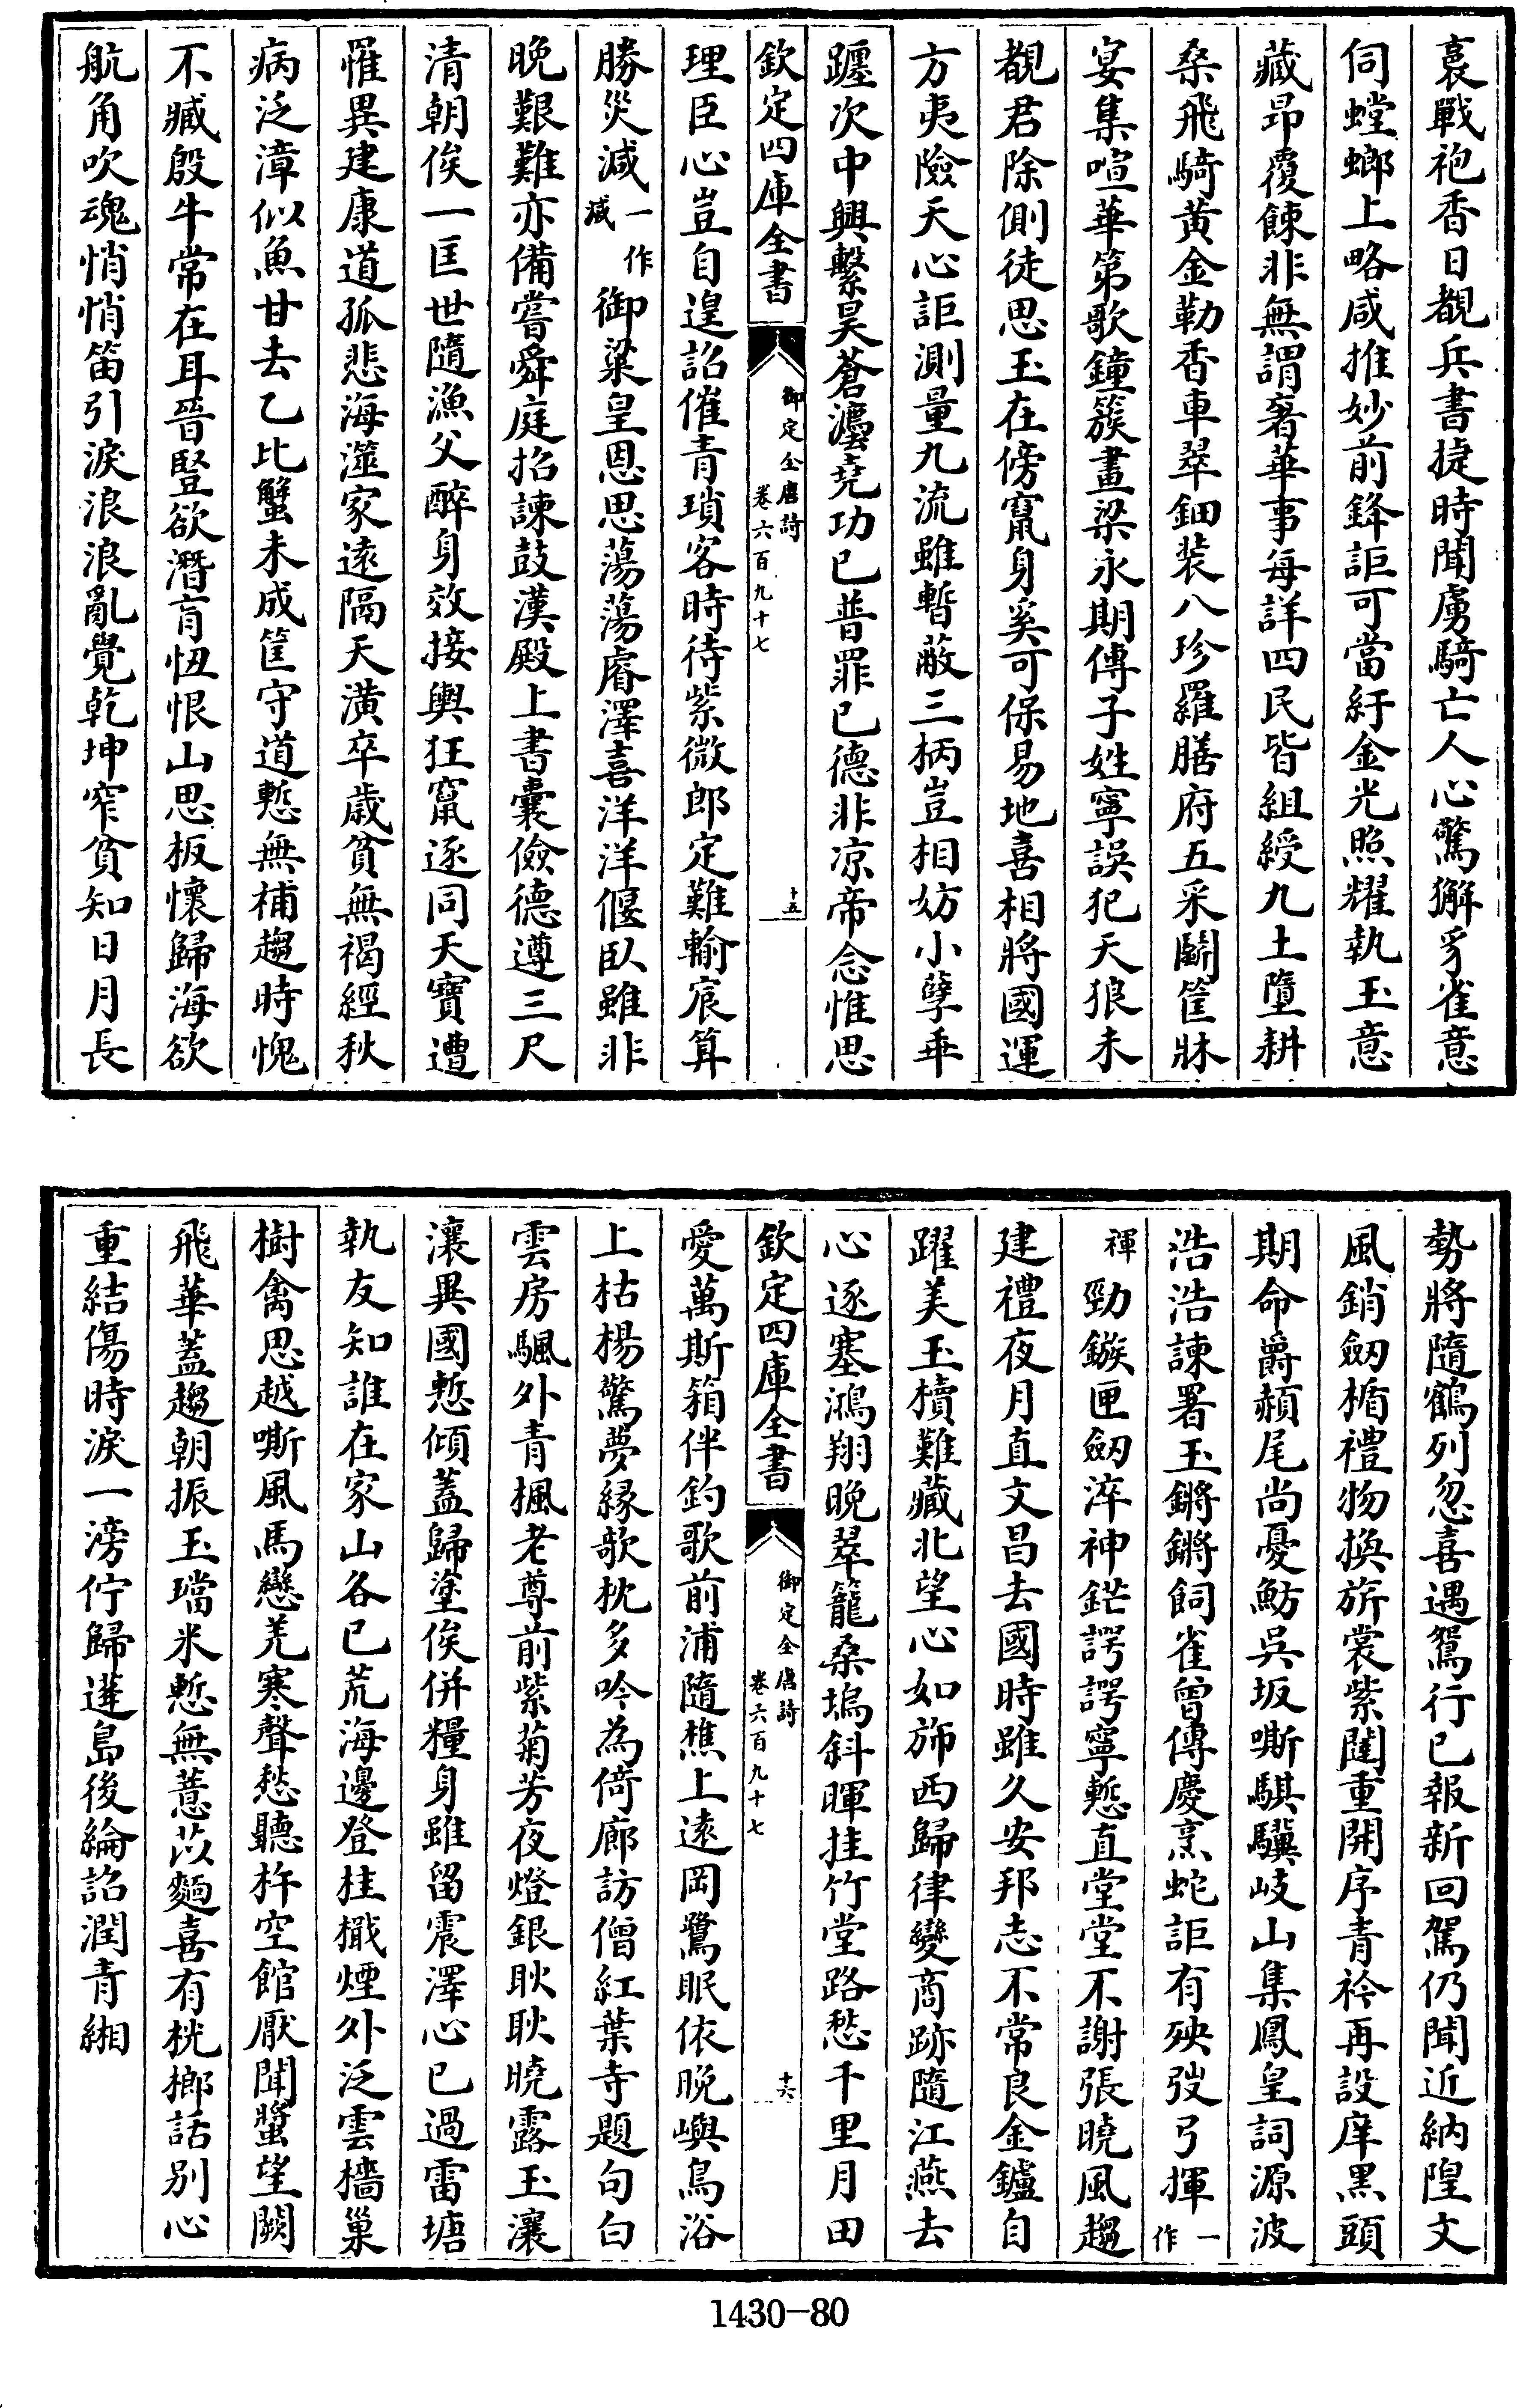 裛戰袍香日覩兵書捷時聞虜騎亡人心驚獬豸雀意
伺螳螂上略咸推妙前鋒詎可當紆金光照耀執玉意
藏昂覆餗非無謂奢華事每詳四民皆組綬九土墮耕
桑飛騎黄金勒香車翠鈿裝八珍羅膳府五采鬭筐牀
宴集喧華第歌鐘簇畫梁永期傳子姓寧誤犯天狼未
覩君除側徒思玉在傍竄身奚可保易地喜相將國運
方夷險天心詎測量九流雖暫蔽三柄豈相妨小孽乖
躔次中興繫昊蒼瀍堯功已普罪已德非凉帝念惟思
欽定四庫全書
御定全唐詩
卷六百九十七
十五
理臣心豈自遑詔催青瑣客時待紫微郎定難輸宸算
勝災減一作減御粱皇恩思蕩蕩睿澤喜洋洋偃臥雖非
晚艱難亦備嘗舜庭招諫鼓漢殿上書囊儉德遵三尺
清朝俟一匡世隨漁父醉身效接輿狂竄逐同天寶遭
罹異建康道孤悲海澨家遠隔天潢卒歲貧無褐經秋
病泛漳似魚甘去乙比蟹未成筐守道慙無補趨時愧
不臧殷牛常在耳晉豎欲潛肓忸恨山思板懷歸海欲
航角吹魂悄悄笛引淚浪浪亂覺乾坤窄貧知日月長
勢將隨鶴列忽喜遇鴛行已報新回駕仍聞近納隍文
風銷劒楯禮物換旂裳紫闥重開序青衿再設庠黑頭
期命爵赬尾尚憂魴吳坂嘶騏驥岐山集鳳皇詞源波
浩浩諫署玉鏘鏘飼雀曾傳慶烹蛇詎有殃弢弓揮一作
褌勁鏃匣劒淬神鋩諤諤寧慙直堂堂不謝張曉風趨
建禮夜月直文昌去國時雖久安邦志不常良金鑪自
躍美玉櫝難藏北望心如斾西歸律變商跡隨江燕去
心逐塞鴻翔晚翠籠桑塢斜暉挂竹堂路愁千里月田
欽定四庫全書
御定全唐詩
卷六百九十七
十六
愛萬斯箱伴釣歌前浦隨樵上遠岡鷺眠依晚嶼鳥浴
上枯楊驚夢緣欹枕多吟為倚廊訪僧紅葉寺題句白
雲房颿外青楓老尊前紫菊芳夜燈銀耿耿曉露玉瀼
瀼異國慙傾蓋歸塗俟併糧身雖留震澤心已過雷塘
執友知誰在家山各已荒海邊登桂檝煙外泛雲檣巢
樹禽思越嘶風馬戀羌寒聲愁聽杵空館厭聞螿望闕
飛華蓋趨朝振玉璫米慙無薏苡麵喜有桄榔話別心
重結傷時淚一滂佇歸蓬島後綸詔潤青緗
1430-80